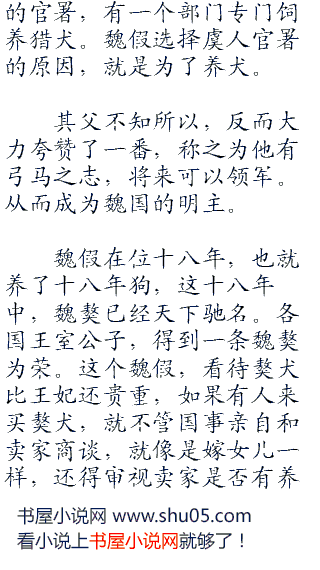 的官署，有一个部门专门饲
养猎犬。魏假选择虞人官署
的原因，就是为了养犬。
其父不知所以，反而大
力夸赞了一番，称之为他有
弓马之志，将来可以领军。
从而成为魏国的明主。
魏假在位十八年，也就
养了十八年狗，这十八年
中，魏獒已经天下驰名。各
国王室公子，得到一条魏獒
为荣。这个魏假，看待獒犬
比王妃还贵重，如果有人来
买獒犬，就不管国事亲自和
卖家商谈，就像是嫁女儿一
样，还得审视卖家是否有养
书屋小说网 www.shu05.com
看小说上书屋小说网就够了！